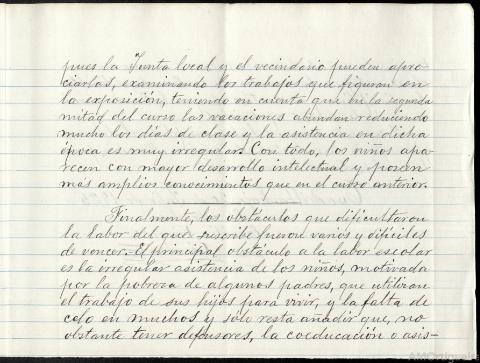 pues la Junta local y el vecindario pueden apre-
ciarlos, examinando los trabajos que figuran en
la exposición, teniendo en cuenta que en la segunda
mitad del curso las vacaciones abundan reduciendo
mucho los dias de clase y la asistencia en dicha
época es muy irregular. Con todo, los niños apa-
recen con mayor desarrollo intelectual y poseen
más amplios conocimientos que en el curso anterior.
Finalmente, los obstáculos que dificultaron
la labor del que suscribe fueron varios y difíciles
de vencer. El principal obstáculo a la labor escolar
es la irregular asistencia de los niños, motivada
por la pobreza de algunos padres, que utilizan
el trabajo de sus hijos para vivir, y la falta de
celo en muchos y solo resta añadir que, no
obstante tener defensores, la coeducación o asis-